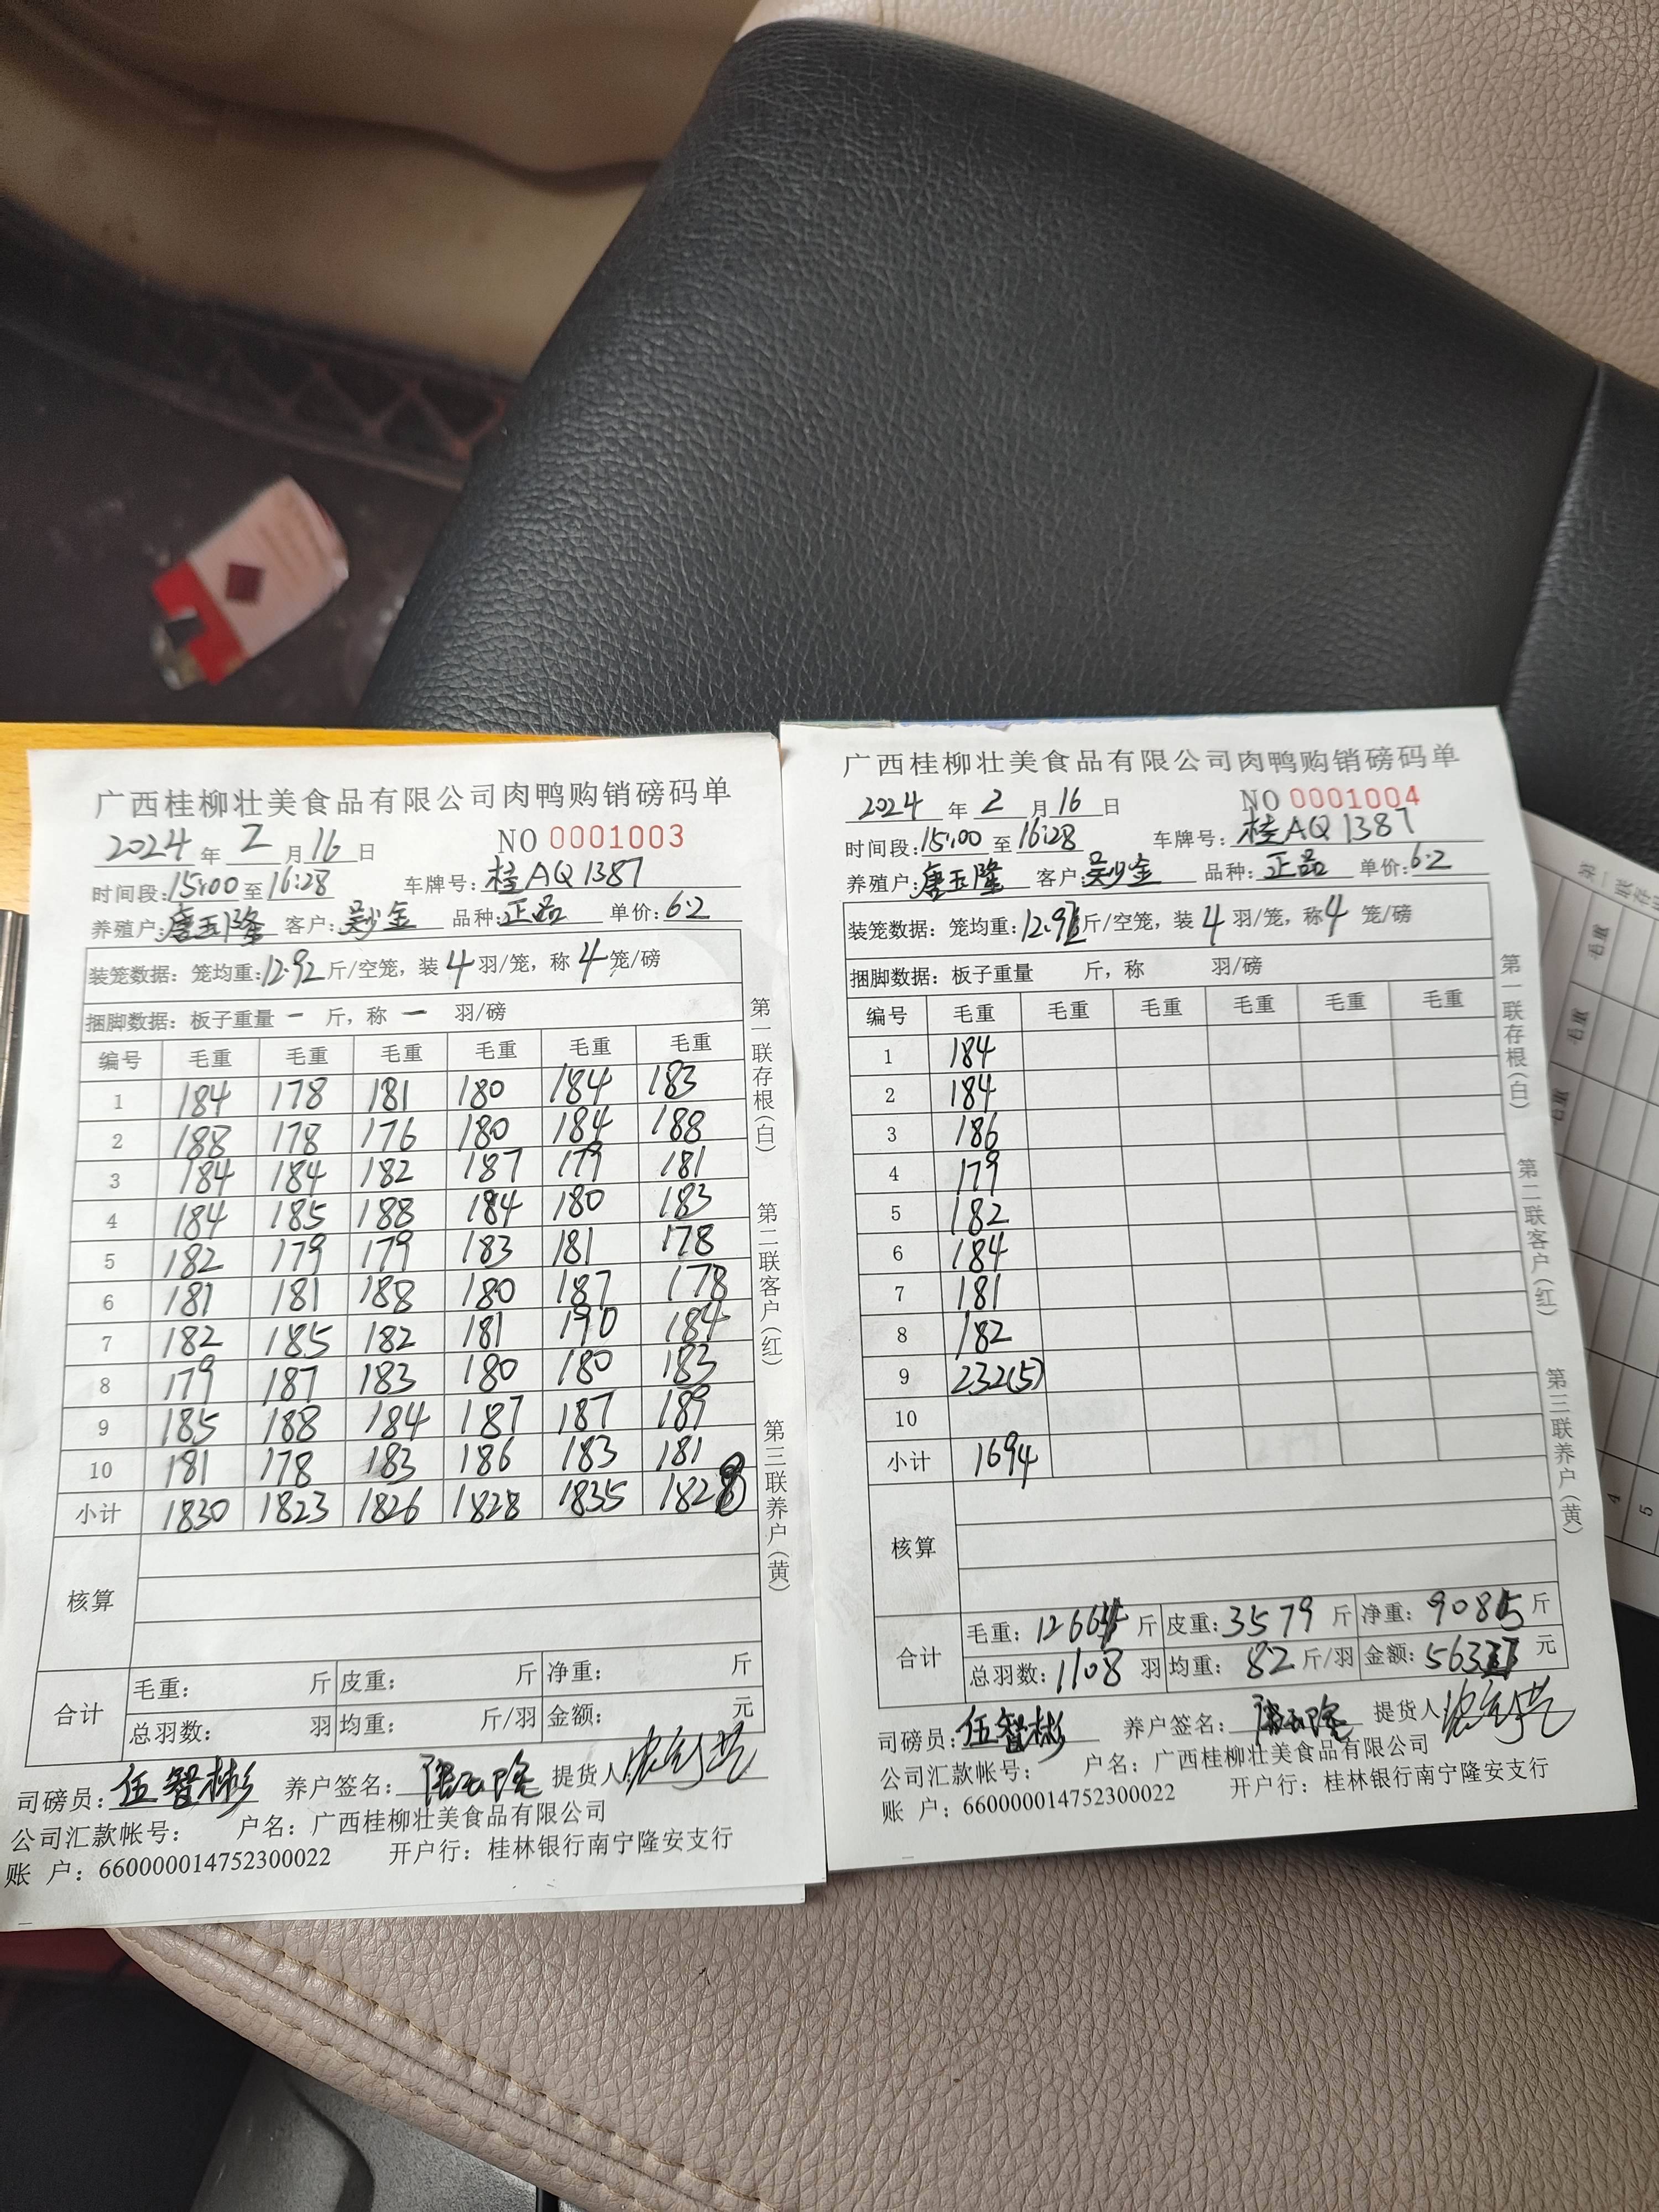 广西桂柳壮美食品有限公司肉鸭购销磅码单
2024 年 2 月 16 日 NO 0001003
时间段:15:00 至 16:28 车牌号: 桂AQ1387
养殖户:唐玉隆 客户:吴少金 品种:正品 单价:6.2
装笼数据: 笼均重:12.92 斤/空笼, 装 4 羽/笼, 称 4 笼/磅
捆脚数据: 板子重量 一 斤, 称 一 羽/磅
编号 毛重 毛重 毛重 毛重 毛重 毛重
1 184 178 181 180 184 183
2 188 178 176 180 184 188
3 184 184 182 187 179 181
4 184 185 188 184 180 183
5 182 179 179 183 181 178
6 181 181 188 180 187 178
7 182 185 182 181 190 184
8 179 187 183 180 180 183
9 185 188 184 187 187 189
10 181 178 183 186 183 181
小计 1830 1823 1826 1828 1835 1828
核算
合计 毛重: 斤 皮重: 斤 净重: 斤
总羽数: 羽 均重: 斤/羽 金额: 元
司磅员: 伍智彬 养户签名: 唐玉隆 提货人:
公司汇款帐号: 户名: 广西桂柳壮美食品有限公司
账 户: 660000014752300022 开户行: 桂林银行南宁隆安支行
第一联存根(白) 第二联客户(红) 第三联养户(黄)
广西桂柳壮美食品有限公司肉鸭购销磅码单
2024 年 2 月 16 日 NO 0001004
时间段:15:00 至 16:28 车牌号: 桂AQ1387
养殖户:唐玉隆 客户:吴少金 品种: 正品 单价:6.2
装笼数据: 笼均重:12.92 斤/空笼, 装 4 羽/笼, 称 4 笼/磅
捆脚数据: 板子重量 斤, 称 羽/磅
编号 毛重 毛重 毛重 毛重 毛重 毛重
1 184
2 184
3 186
4 179
5 182
6 184
7 181
8 182
9 232(5)
10
小计 1694
核算
合计 毛重: 12664 斤 皮重: 3579 斤 净重: 9085 斤
总羽数: 1108 羽 均重: 82 斤/羽 金额: 元
司磅员: 伍智彬 养户签名: 唐玉隆 提货人
公司汇款帐号: 户名: 广西桂柳壮美食品有限公司
账 户: 660000014752300022 开户行: 桂林银行南宁隆安支行
第一联存根(白) 第二联客户(红) 第三联养户(黄)
毛重
毛重
毛重
4
5